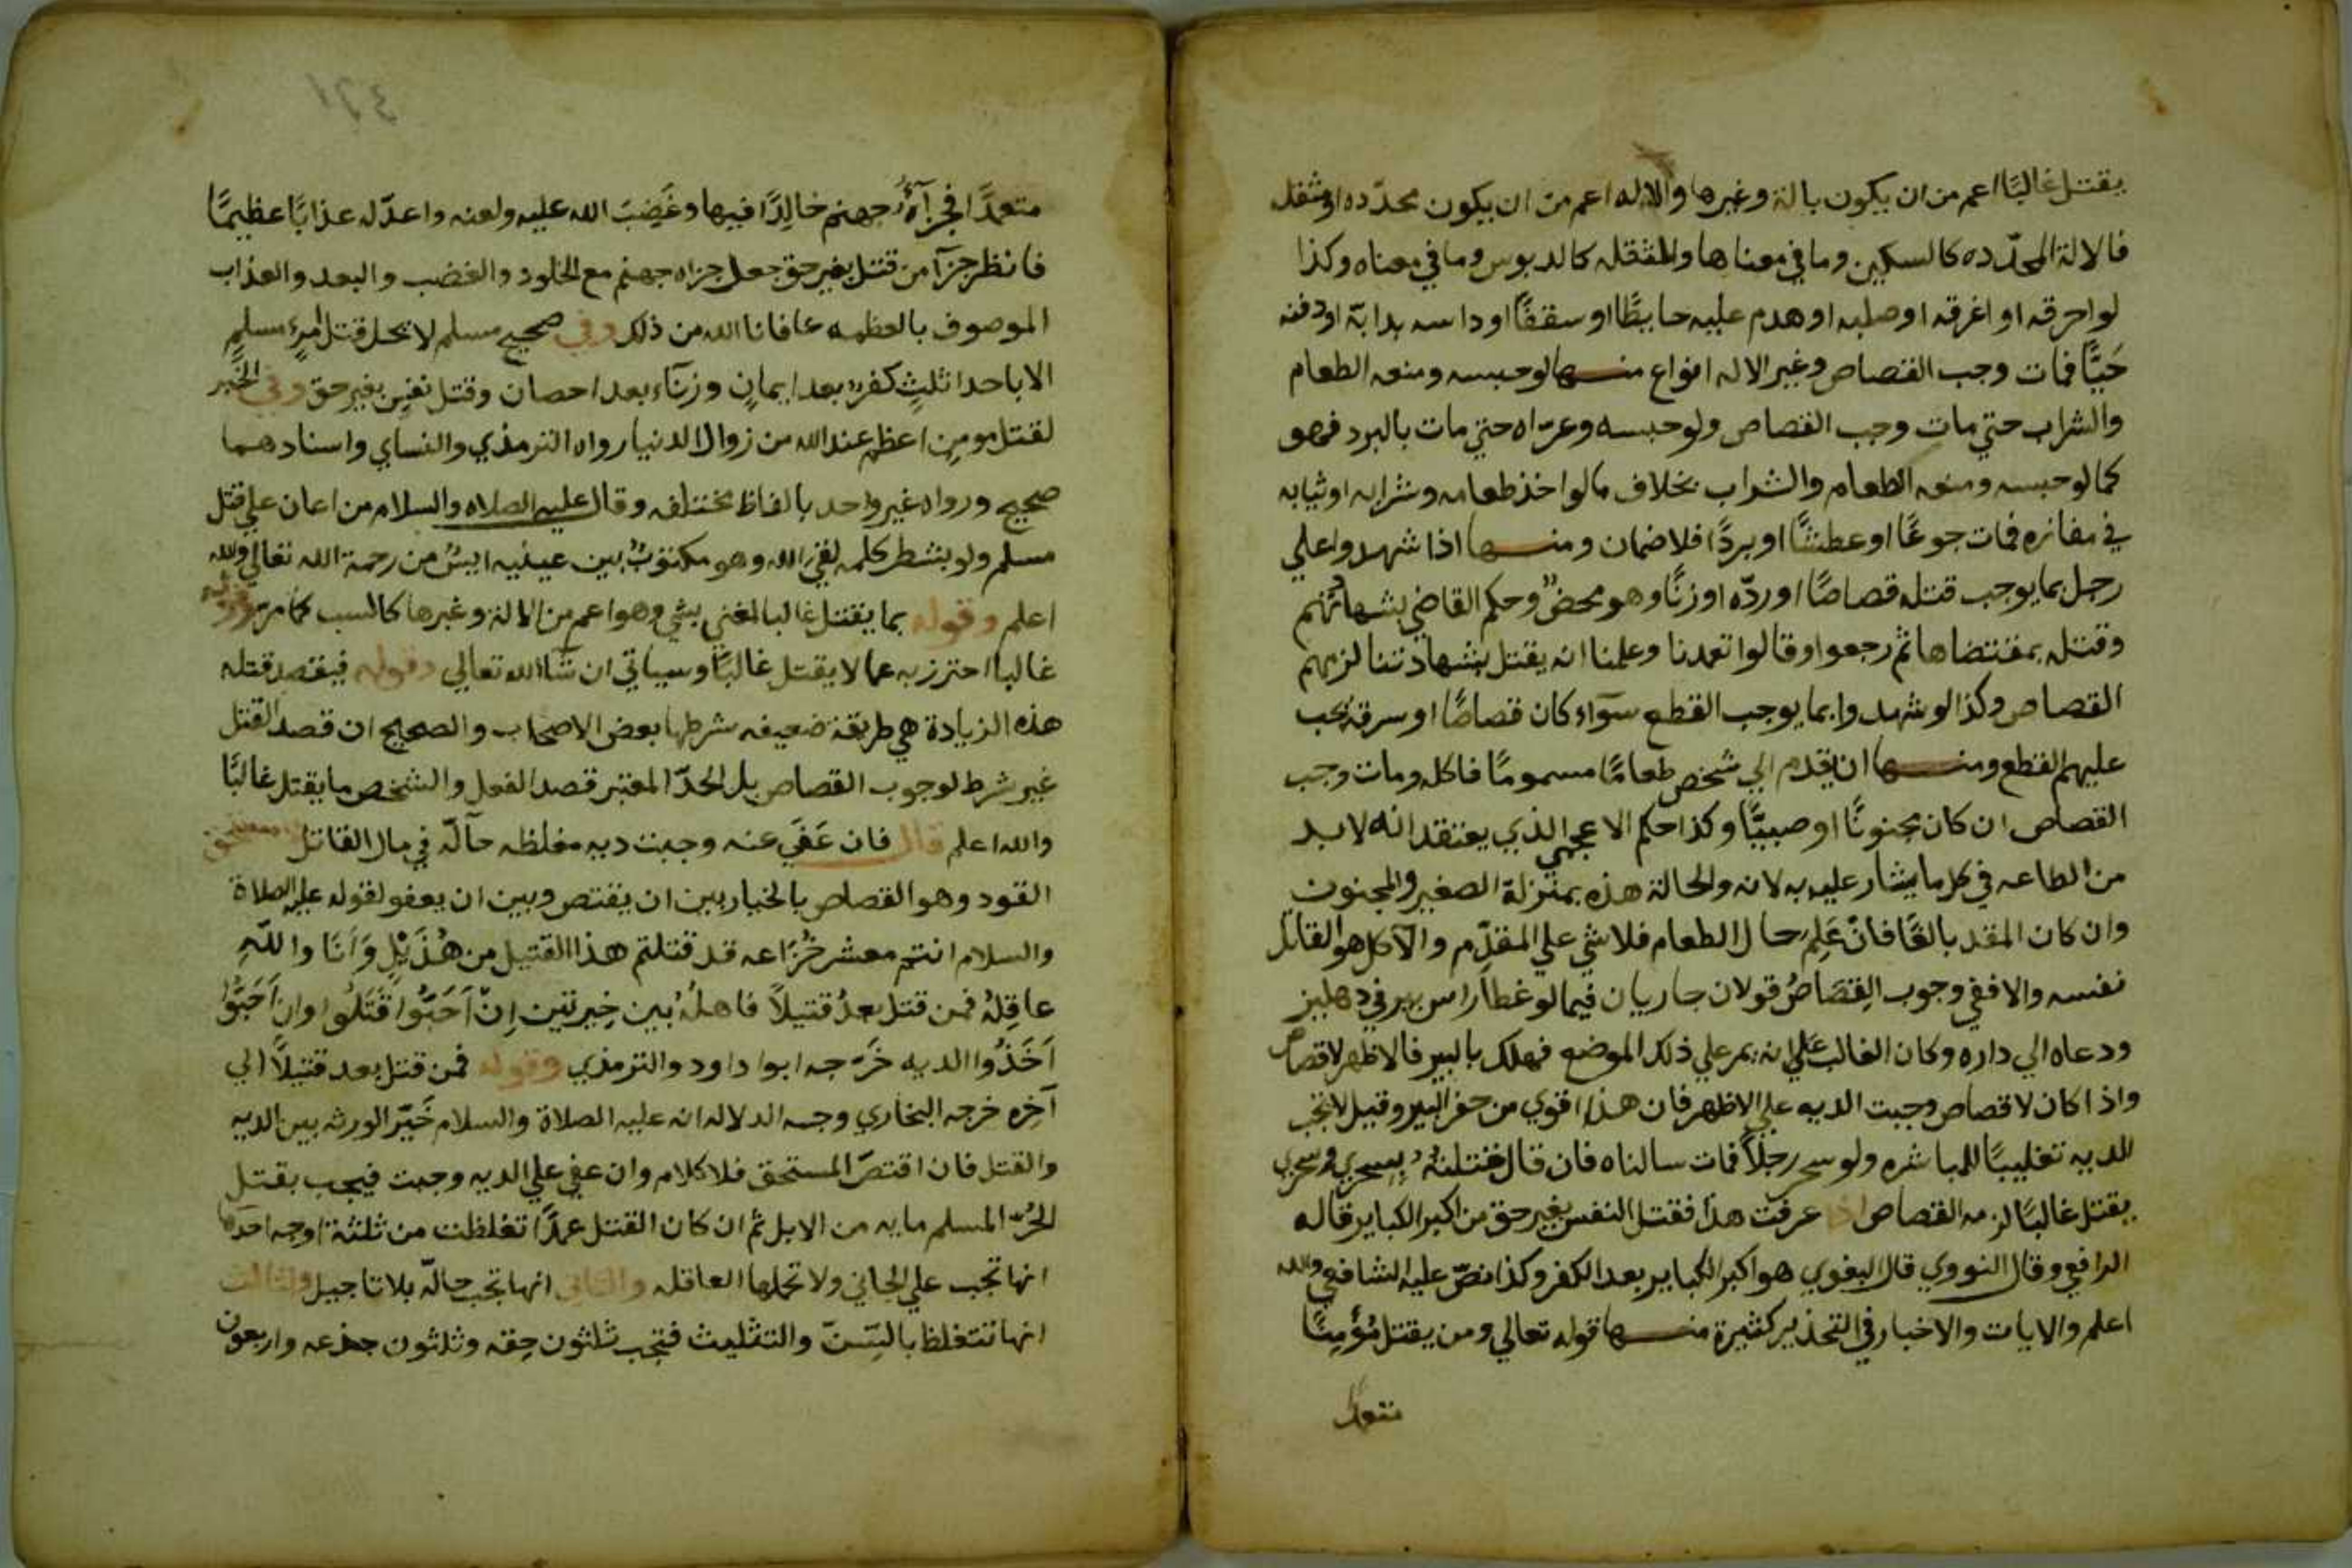 يقتل غالبًا اعم من ان يكون بالة وغيرها والاله اعم من ان يكون محدّده او مثقله
فالالة المحدّده كالسكين وما في معناها والمثقله كالدبوس وما في معناه وكذا
لو احرقه او اغرقه او صلبه او هدم عليه حايطًا او سقفًا او داسه بدابة او دفنه
حَيًّا فمات وجب القصاص وغير الاله انواع منها لو حبسه ومنعه الطعام
والشراب حتي مات وجب القصاص ولو حبسه وعرّاه حتي مات بالبرد فهو
كما لو حبسه ومنعه الطعام والشراب بخلاف ما لو اخذ طعامه وشرابه او ثيابه
في مفازه فمات جوعًا او عطشًا او بردًا فلا ضمان ومنها اذا شهدوا علي
رجل بما يوجب قتله قصاصًا او ردّه او زنًا وهو محصن وحكم القاضي بشهادتهم
وقتله بمقتضاها ثم رجعوا وقالوا تعمدنا وعلمنا انه يقتل بشهادتنا لزمهم
القصاص وكذا لو شهدوا بما يوجب القطع سوآء كان قصاصًا او سرقة يجب
عليهم القطع ومنها ان يقدم الي شخص طعامًا مسمومًا فاكله ومات وجب
القصاص ان كان مجنونًا او صبيًّا وكذا حكم الاعجمي الذي يعتقد انه لابد
من الطاعه في كل ما يشار عليه به لانه والحالة هذه بمنزلة الصغير والمجنون
وان كان المقد بالغًا فان عَلِمَ حال الطعام فلا شي علي المقدّم والآكل هو القاتل
نفسه والا ففي وجوب القِصَاصُ قولان جاريان فيما لو غطا راس بير في دهليز
ودعاه الي داره وكان الغالب علي انه يمر علي ذلك الموضع فهلك بالبير فالاظهر لا قصاص
واذا كان لا قصاص وجبت الديه علي الاظهر فان هذا اقوي من حفر البير وقيل لا تجب
الديه تغليبًا للمباشره ولو سحر رجلاً فمات سالناه فان قال قتلتهُ بسحري وسحري
يقتل غالبًا لزمه القصاص اذا عرفت هذا فقتل النفس بغير حق من اكبر الكباير قاله
الرافعي وقال النووي قال البغوي هو اكبر الكباير بعد الكفر وكذا نصّ عليه الشافعي والله
اعلم والايات والاخبار في التحذير كثيرة منها قوله تعالي ومن يقتل مُؤمِنًا
متعمدًا
متعمدًا فجزآؤُه جهنم خالِدًا فيها وغَضِبَ الله عليه ولعنه واعدّ له عذابًا عظيمًا
فانظر جزآ من قتل بغير حق جعل جزاه جهنم مع الخلود والغضب والبعد والعذاب
الموصوف بالعظمه عافانا الله من ذلك وفي صحيح مسلم لا يحل قتل امرءٍ مسلمٍ
الا باحدا ثلثٍ كفرٌ بعد ايمانٍ وزنآء بعد احصان وقتل نفسٍ بغير حق وفي الخبر
لقتل مومن اعظم عند الله من زوال الدنيا رواه الترمذي والنساي واسنادهما
صحيح ورواه غير واحد بالفاظ مختلفه وقال عليه الصلاه والسلام من اعان علي قتل
مسلم ولو بشطر كلمه لقي الله وهو مكتوبٌ بين عينيه ايسٌ من رحمة الله تعالي والله
اعلم وقوله بما يقتل غالبا المعني بشي وهو اعم من الالة وغيرها كالسبب كما مرّ وقوله
غالبا احترز به عما لا يقتل غالبًا وسياتي ان شآ الله تعالي وقوله فيقصد قتله
هذه الزيادة هي طريقة ضعيفه شرطها بعض الاصحاب والصحيح ان قصد القتل
غير شرط لوجوب القصاص بل الحدّ المعتبر قصد الفعل والشخص ما يقتل غالبًا
والله اعلم قال فان عَفَي عنه وجبت ديه مغلظه حآلّه في مال القاتل مستحق
القود وهو القصاص بالخيار بين ان يقتص وبين ان يعفو لقوله عليه الصلاة
والسلام انتم معشر خُزَاعه قد قتلتم هذا القتيل من هُذَيْلٍ وَاَنَا واللّهِ
عاقِلهُ فمن قتل بعدُ قتيلاً فاهلُهُ بين خِيرتين اِنْ اَحَبُّوا قَتَلُوا وان اَحَبُّوا
اَخَذُوا الديه خَرّجه ابوا داود والترمذي وقوله فمن قتل بعد قتيلاً الي
آخِره خرجه البخاري وجه الدلاله انه عليه الصلاة والسلام خَيّر الورثه بين الديه
والقتل فان اقتصّ المستحق فلا كلام وان عفي علي الديه وجبت فيجب بقتل
الحُرّ المسلم مايه من الابل ثم ان كان القتل عمدًا تغلظت من ثلثة اوجه احدها
انها تجب علي الجاني ولا تحملها العاقله والثاني انها تجب حالّه بلا تاجيل والثالث
انها تتغلظ بالسِّنّ والتثليث فتجب ثلثون حِقه وثلثون جذعه واربعون